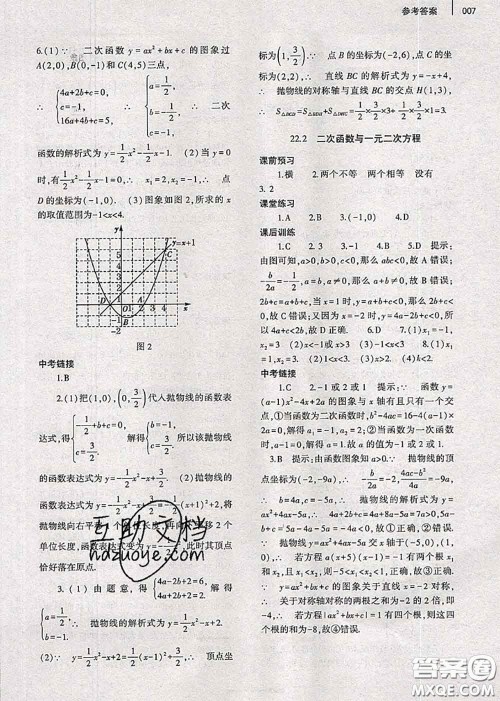 参考答案 007
6.(1)∵ 二次函数 y=ax²+bx+c 的图象过
A(2,0),B(0,-1)和C(4,5)三点,
∴ {4a+2b+c=0, c=-1, 16a+4b+c=5, ∴ {a=1/2, b=-1/2, c=-1, ∴ 二次
函数的解析式为 y=1/2x²-1/2x-1. (2)当 y=0
时,有1/2x²-1/2x-1=0. ∴ x₁=2,x₂=-1, ∴ 点
D 的坐标为(-1,0). (3)图象如图2,所求的 x
的取值范围为-1<x<4.
y
y=x+1
C
D
O
A
B
x
图 2
中考链接
1.B
2.(1)把(1,0),(0,3/2)代入抛物线的函数表
达式,得{-1/2+b+c=0, c=3/2. 解得{b=-1, c=3/2. 所以该抛物线的
函数表达式为 y=-1/2x²-x+3/2. (2)抛物线的
函数表达式为 y=-1/2x²-x+3/2=-1/2(x+1)²+2,将
抛物线向右平移 1 个单位长度,再向下平移 2 个
单位长度,函数表达式变为 y=-1/2x²,此时其顶点
恰好落在原点.
3.(1)由题意,得{4a-2b+2=6, 4a+2b+2=2. 解得
{a=1/2, b=-1. ∴ 抛物线的解析式为 y=1/2x²-x+2.
(2)∵ y=1/2x²-x+2=1/2(x-1)²+3/2, ∴ 顶点坐
标为(1,3/2). ∵ 点 B 的坐标为(-2,6),点 C 的
坐标为(2,2), ∴ 直线 BC 的解析式为 y=-x+4,
∴ 抛物线的对称轴与直线 BC 的交点 H(1,3),
∴ 3/2×3+1/2×3/2×1=3.
22.2 二次函数与一元二次方程
课前预习
1.横 2.两个不等 两个相等 没有
3.2
课堂练习
1.A 2.B 3.(-1,0) 4.D
课后训练
1.C 2.3 3.-1 4.B 5.D 提示:
由图可知,a>0,b>0,c<0,那么 abc<0,故 A 错误;
-b/2a=-1/2, ∴ b=a,a+b≠0,故 B 错误;
2b+c=a+b+c, ∵ 当 x=1时,a+b+c<0,即 2b+c
<0,故 C 错误;又因为 x=-2 时,y<0,即 4a-2b+c<0,所
以4a+c<2b,故 D 正确. 6.D 7.(1)x₁=-1,
x₂=3 (2)-1<x<3 (3)x<-1或x>3 8.(1)x₁=1,
x₂=3 (2)1<x<3 (3)x>2 (4)k<2
中考链接
1.C 2.-1或2或1 提示:∵ 函数 y=
(a-1)x²-4x+2a 的图象与 x 轴有且只有一个交
点,①当函数为二次函数时,b²-4ac=16-4(a-1)×
2a=0,解得 a₁=-1,a₂=2. ②当函数为一次函数时,
a-1=0,解得 a=1. 故 a 的值为-1或2或1.
3.B 提示:由函数图象知 a>0. ∵ 抛物线的顶
点坐标为(-2,-9a), ∴ -b/2a=-2, (4ac-b²)/4a=-9a,
∴ b=4a,c=-5a, ∴ 抛物线的解析式为 y=ax²+4ax
-5a, ∴ ①正确,②错误.
∵ 抛物线
∴ 若方程 a(x+5)(x-1)=-1有两个根 x₁
和 x₂,且 x₁<x₂,则-5<x₁<x₂<1. ③正确.
∵ y=ax²+bx+c 的图象关于直线 x=-2 对称,
∴ 关于对称轴对称的两根之和为-2的2倍,即
-4, ∴ 若方程|ax²+bx+c|=1有四个根,则这四
个根的和为-8,故④错误.
互助文档
hdzuoye.com
答案圈
MXQE.COM